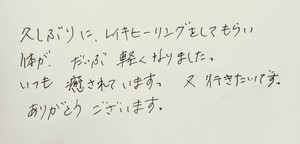 久しぶりに、レイキヒーリングをしてもらい
体が、だいぶ 軽くなりました。
いつも 癒されています。 又 行きたいです。
ありがとう ございます。